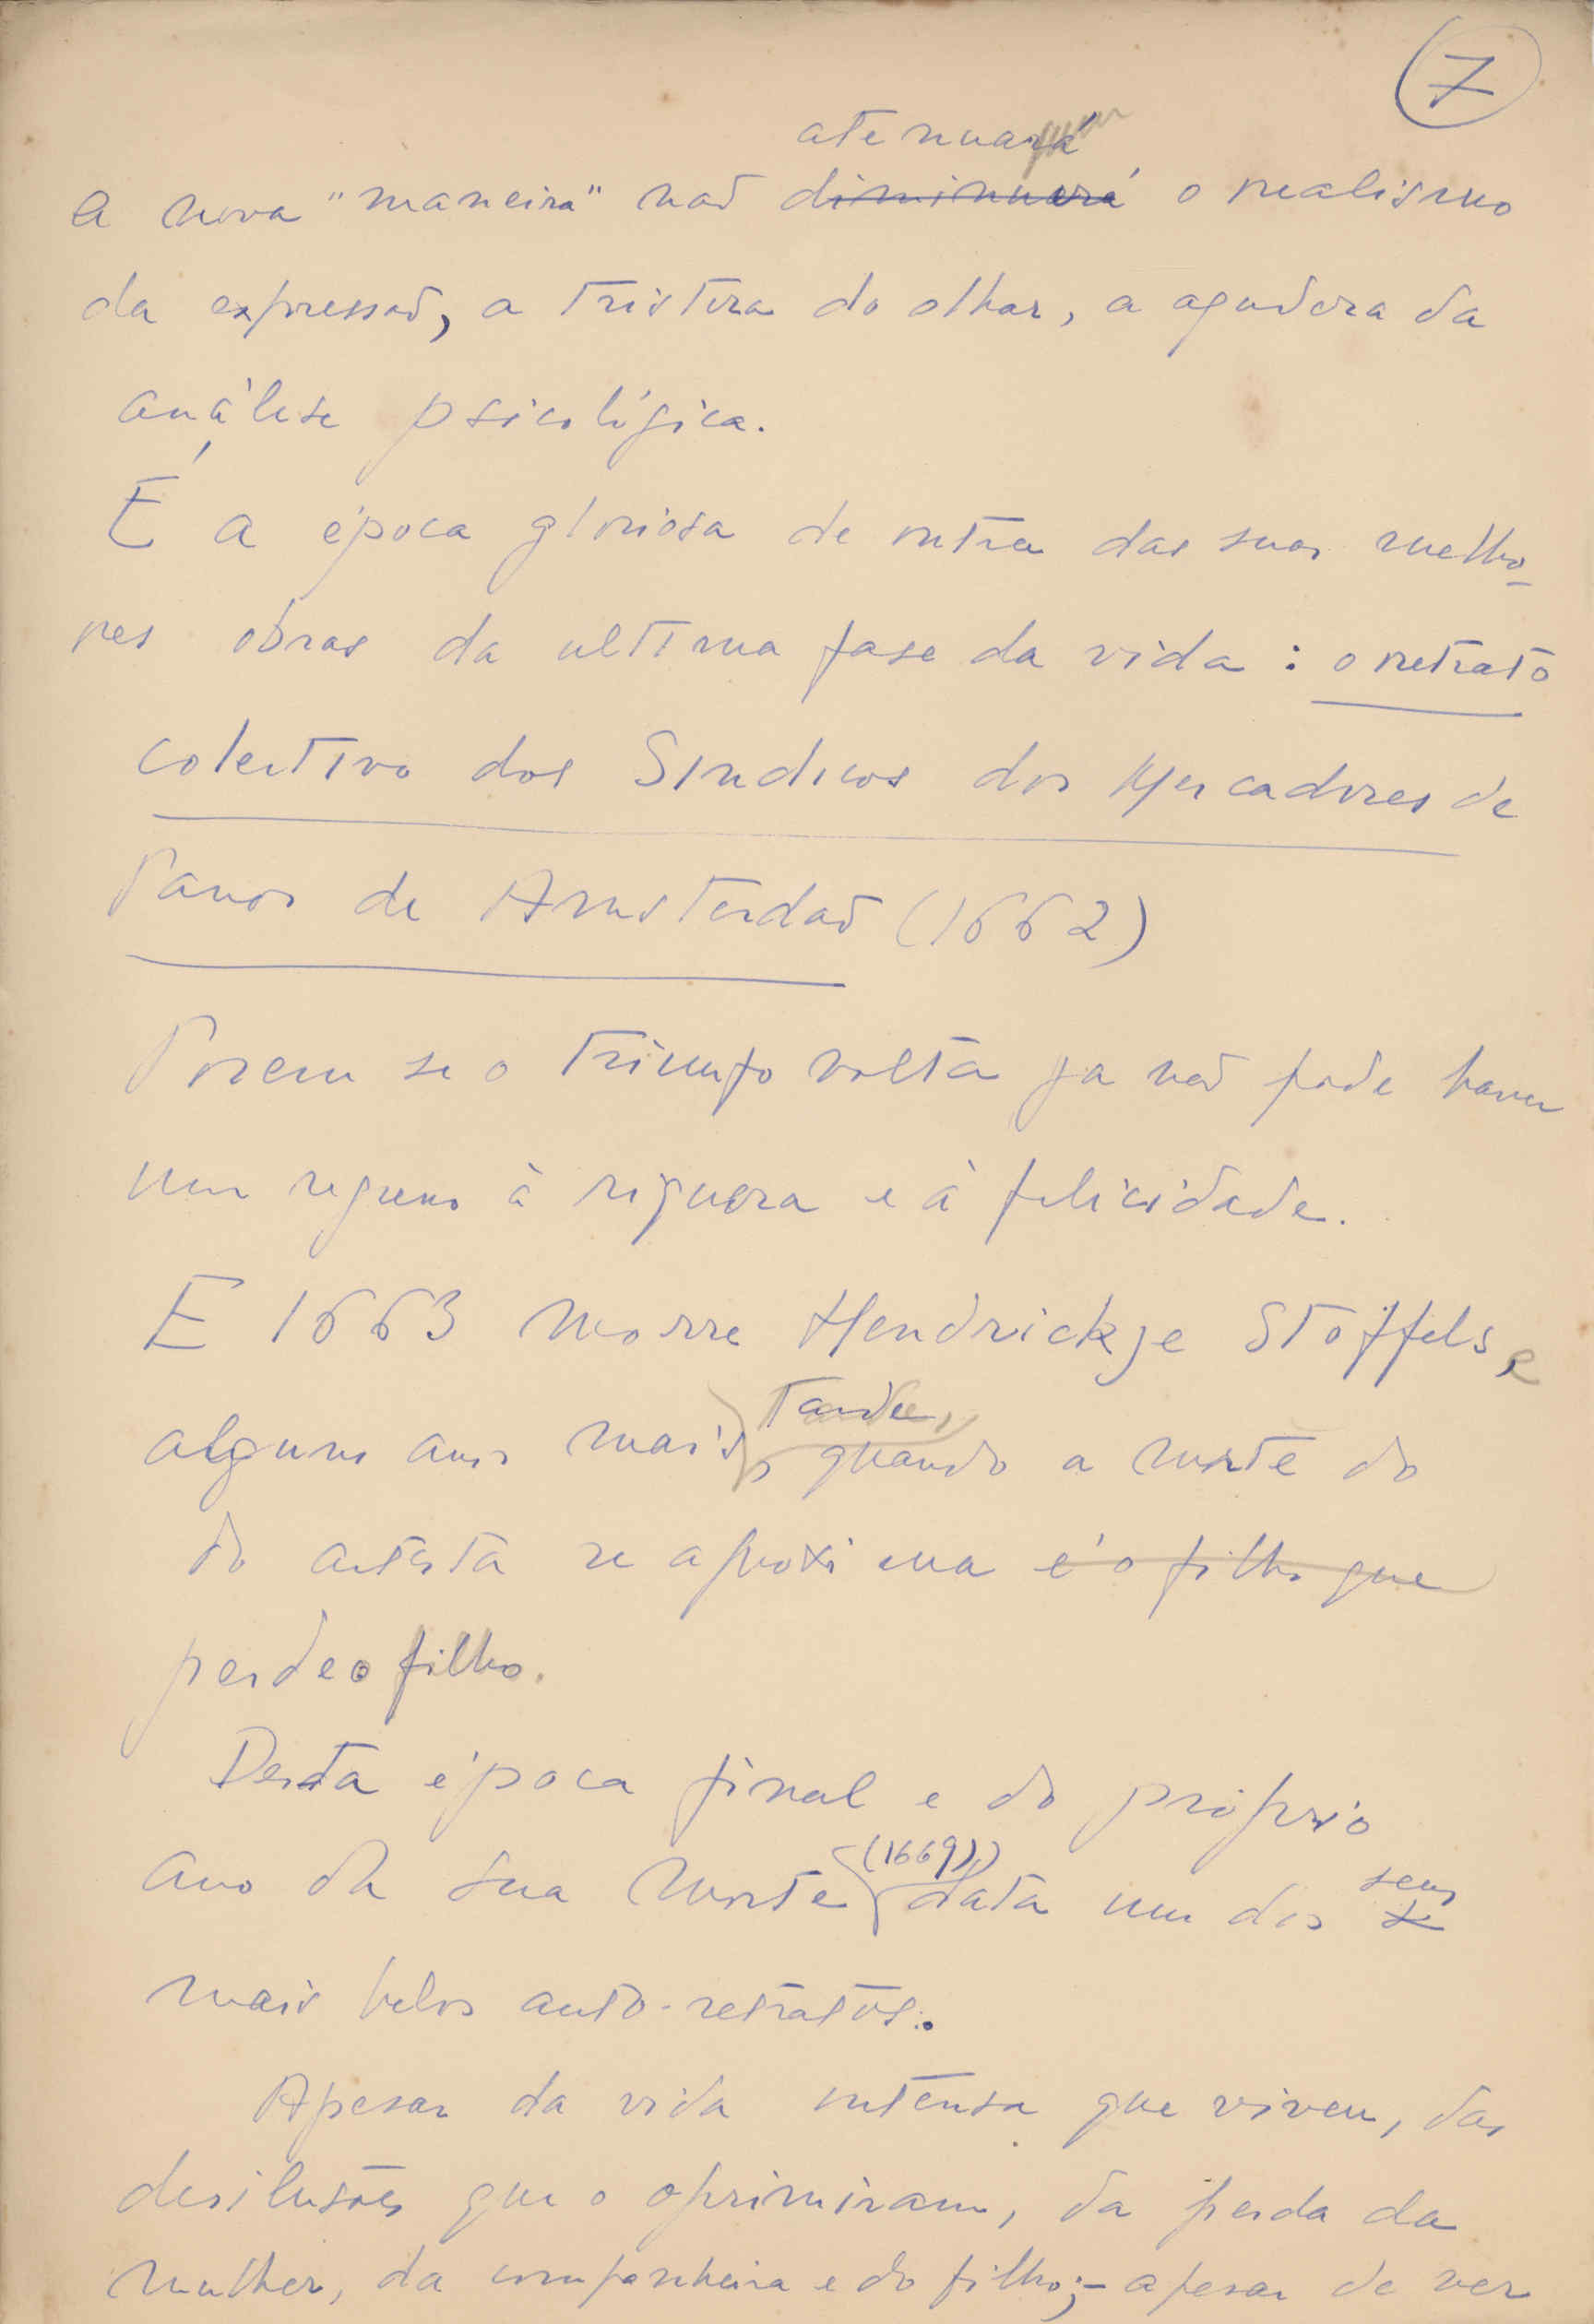 7
atenuará
a nova "maneira" não diminuirá o realismo
da expressão, a tristeza do olhar, a agudeza da
análise psicológica.
É a época gloriosa de outra das suas melho-
res obras da ultima fase da vida : o retrato
colectivo dos Sindicos dos Mercadores de
Panos de Amsterdão (1662)
Porem se o triunfo volta ja não pode haver
um regresso à riqueza e à felicidade.
E 1663 morre Hendrickje Stoffels, e
tarde,
alguns anos mais, quando a morte do
do artista se aproxima é o filho que
perde o filho.
Desta época final e do próprio
(1669))
ano da sua morte data um dos seus
mais belos auto-retratos.
Apesar da vida intensa que viveu, das
desilusões que o oprimiram, da perda da
mulher, da companheira e do filho;- apesar de ver